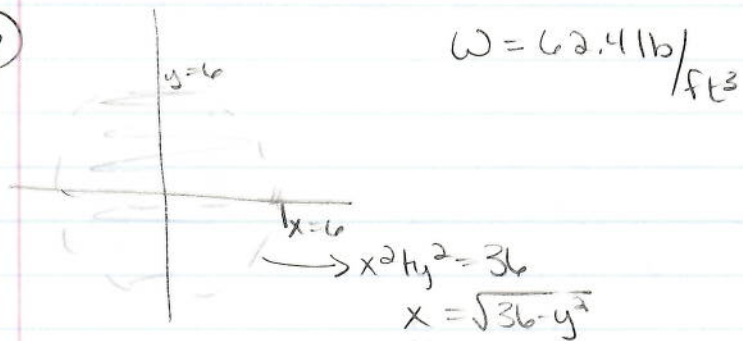 ω = 62.4 lb/ft³
y=6
x=6
→ x²+y² = 36
x = √36-y²